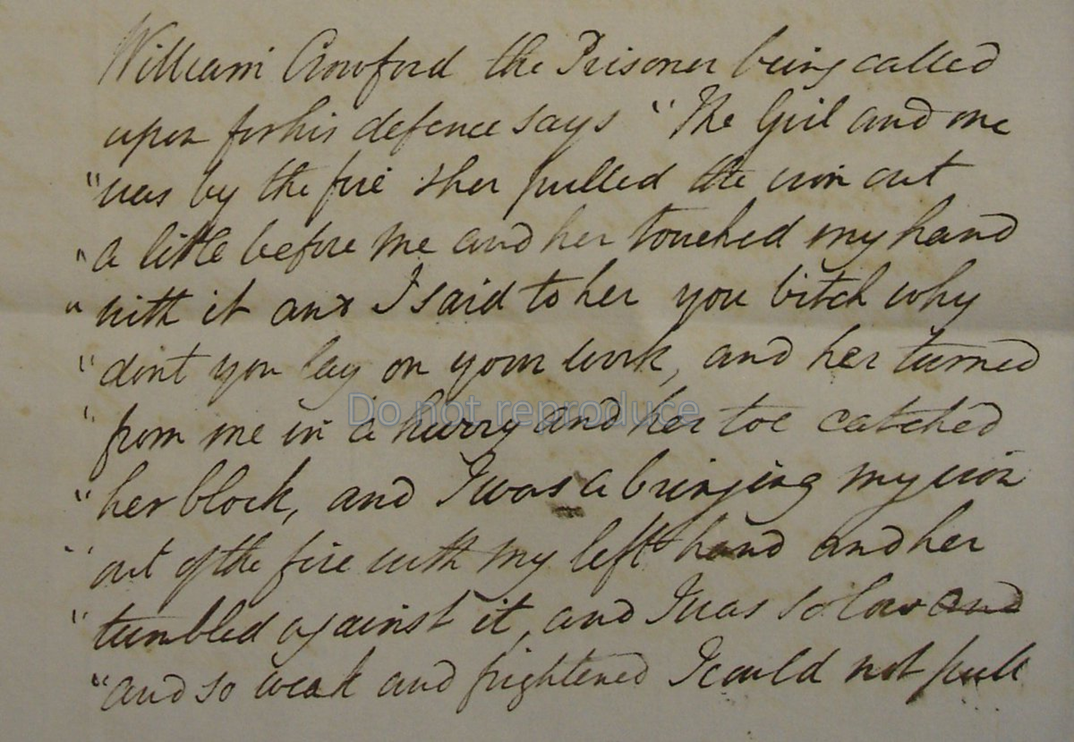 William Crowford the Prisoner being called
upon for his defence says "The Girl and me
"was by the fire sher pulled the iron out
"a little before me and her touched my hand
"with it and I said to her you bitch why
"dont you lay on your work, and her turned
"from me in a hurry and her toe catched
"her block, and I was a bringing my iron
"out of the fire with my left hand and her
"tumbled against it, and I was so low and
"and so weak and frightened I could not pull
Do not reproduce